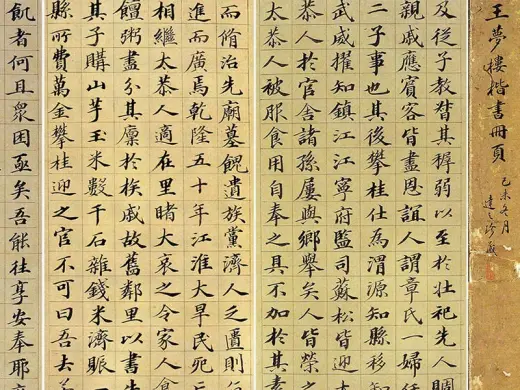 王夢樓楷書冊頁
己未冬月
及從子教督其稺弱以至於壯祀先人賙
親戚應賓客皆盡恩誼人謂章氏一婦任
二子事也其後攀桂仕為渭源知縣移知
武威擢知鎮江江寧府監司蘇松皆迎
恭人於官舍諸孫屢與鄉舉矣人皆榮之
太恭人被服食用自奉之具不加於其素
而脩治先廟墓餽遺族黨濟人乏匱則
進而廣焉乾隆五十年江淮大旱民死
相繼太恭人適在里睹大哀之令家人食
饘粥盡分其廩於族戚故舊鄰里以書
其子購山芋玉米數千石雜錢米濟賑一
縣所費萬金攀桂迎之官不可曰吾去
飢者何且眾困亟矣吾能往享安奉耶